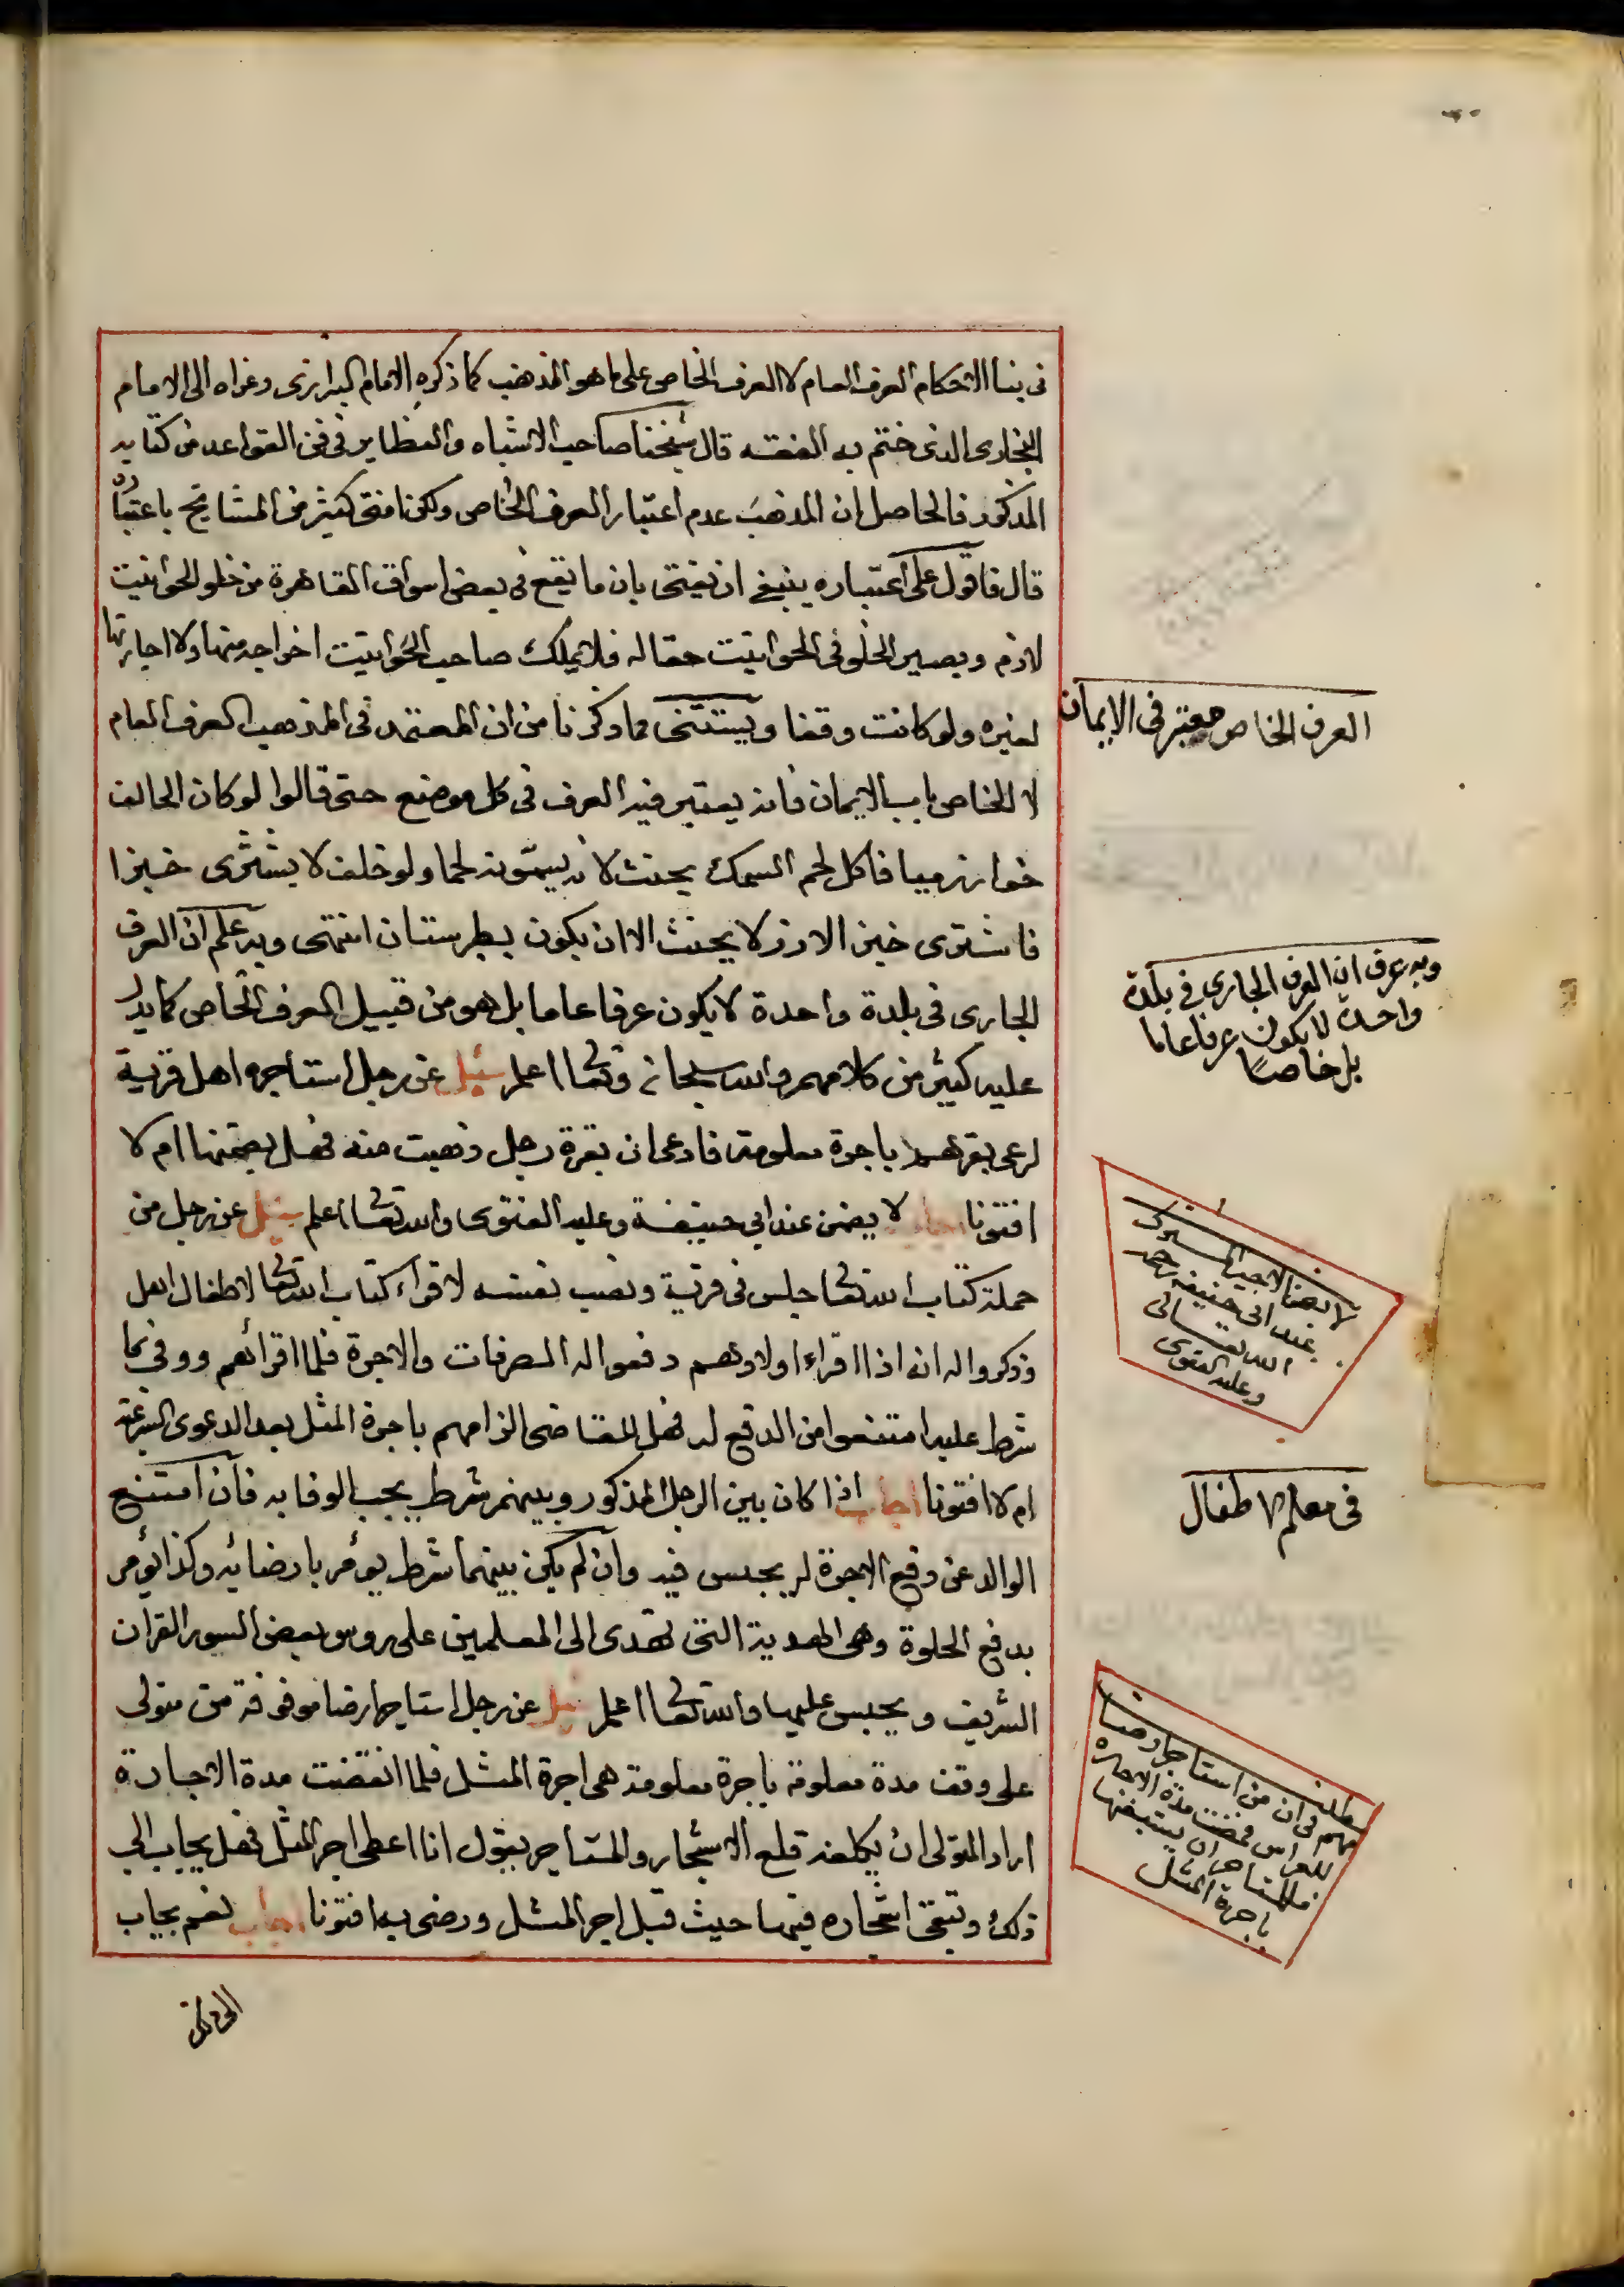 فى بنا الاحكام العرف العام لا العرف الخاص على ما هو المذهب كما ذكره الامام البزازى وعزاه الى الامام
البخارى الذى ختم به الفقه قال شيخنا صاحب الاشباه والنظاير فى فن القواعد من كتابه
المذكور فالحاصل ان المذهب عدم اعتبار العرف الخاص ولكن افتى كثير من المشايخ باعتباره
قال فاقول على اعتباره ينبغى ان يفتى بان ما يقع فى بعض اسواق القاهرة من خلو الحوانيت
لازم ويصير الخلو فى الحوانيت حقا له فلا يملك صاحب الحوانيت اخراجه منها ولا اجارتها
لغيره ولو كانت وقفا ويستثنى مما ذكرنا من ان المعتمد فى المذهب العرف العام
لا الخاص باب الايمان فانه يعتبر فيه العرف فى كل موضع حتى قالوا لو كان الحالف
خوارزميا فاكل لحم السمك يحنث لانه يسمونه لحما ولو حلف لا يشترى خبزا
فاشترى خبز الارز لا يحنث الا ان يكون بطبرستان انتهى وبه علم ان العرف
الجارى فى بلدة واحدة لا يكون عرفا عاما بل هو من قبيل العرف الخاص كما يدل
عليه كثير من كلامهم والله سبحانه وتعا اعلم سئل عن رجل استاجره اهل قرية
لرعى بقرهم باجرة معلومة فادعى ان بقرة رجل ذهبت منه فهل يضمنها ام لا
افتونا اجاب لا يضمن عند ابي حنيفة وعليه الفتوى والله تعا اعلم سئل عن رجل من
حملة كتاب الله تعا جلس فى قرية ونصب نفسه لاقراء كتاب الله تعا لاطفال اهل
وذكروا له انه اذا اقراء اولادهم دفعوا له المصرفات والاجرة فلما اقرائهم ووفى بما
شرط عليه امتنعوا من الدفع له فهل للقاضى الزامهم باجرة المثل بعد الدعوى الشرعية
ام لا افتونا اجاب اذا كان بين الرجل المذكور وبينهم شرط يجب الوفا به فان امتنع
الوالد عن دفع الاجرة له يحبس فيه وان لم يكن بينهما شرط يؤمر بارضائه وكذا يؤمر
بدفع الحلوة وهى الهدية التى تهدى الى المعلمين على روس بعض السور القران
الشريف ويحبس عليها والله تعا اعلم سئل عن رجل استاجر ارضا موقوفة من متولى
على وقف مدة معلومة باجرة معلومة هى اجرة المثل فلما انقضت مدة الاجارة
اراد المتولى ان يكلفه قلع الاشجار والمستاجر يقول انا اعطى اجر المثل فهل يجاب الى
ذلك وتبقى اشجاره فيها حيث قبل اجر المثل ورضى به افتونا اجاب نعم يجاب
العرف الخاص معتبر فى الايمان
وبه عرف ان العرف الجارى فى بلدة
واحدة لا يكون عرفا عاما
بل خاصا
لا يضمن الاجير المشترك
عند ابى حنيفة رحمه
الله تعالى
وعليه الفتوى
فى معلم الاطفال
مطلب
مهم فى ان من استاجر ارضا
للغراس فمضت مدة الاجارة
فللمستاجر ان يستبقيها
باجرة المثل
الى ذلك